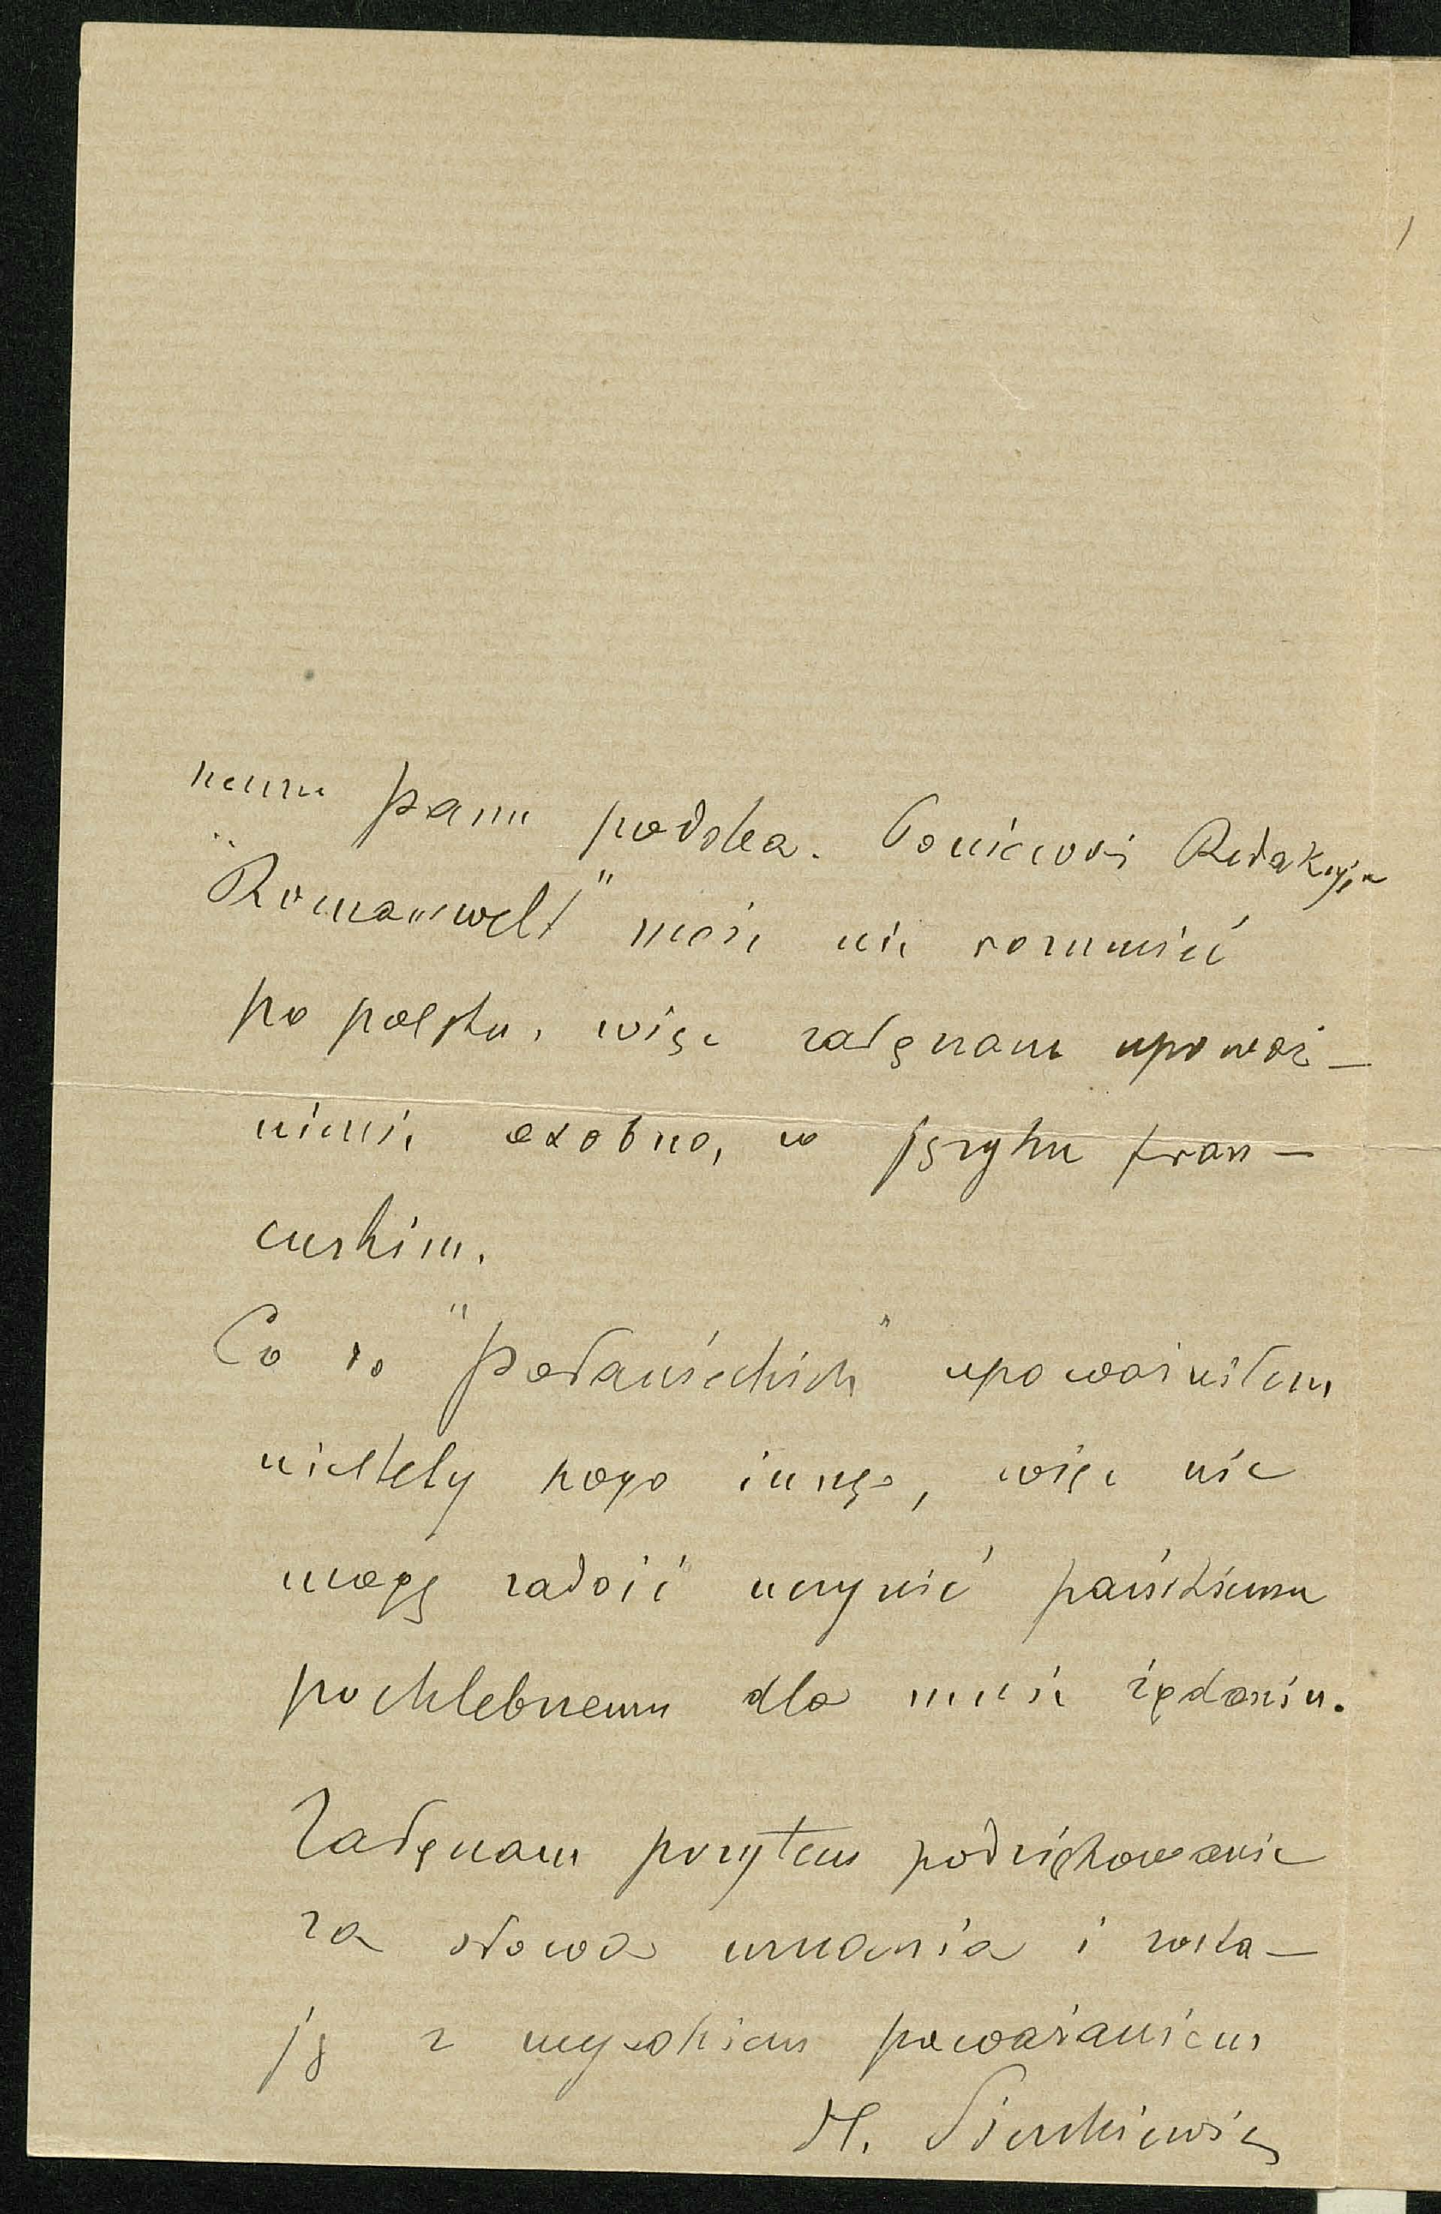 nemu Panu podoba. Ponieważ Redakcyja
"Romanwelt" może nie rozumieć
po polsku, więc załączam upoważ-
nienie osobno, w języku fran-
cuskim.
Co do "Połanieckich" upoważniłem
niestety kogo innego, więc nie
mogę zadość uczynić pańskiemu
pochlebnemu dla mnie żądaniu.
Załączam przytem podziękowanie
za słowa uznania i zosta-
ję z wysokiem poważaniem
H. Sienkiewicz